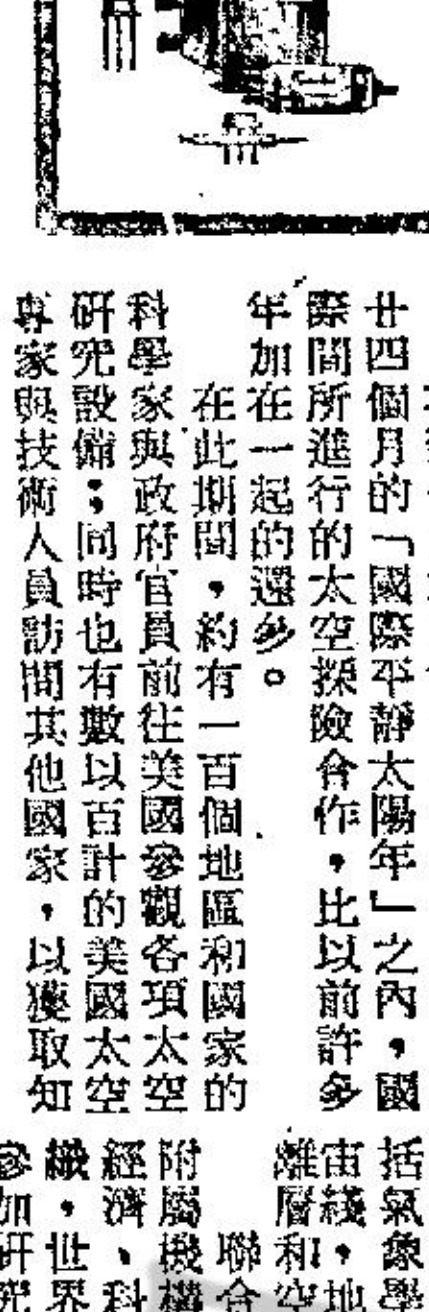 廿四個月的「國際平靜太陽年」之內,國
際間所進行的太空探險合作,比以前許多
年加在一起的還多。
在此期間,約有一百個地區和國家的
科學家與政府官員前往美國參觀各項太空
研究設備;同時也有數以百計的美國太空
專家與技術人員訪問其他國家,以獲取知
括氣象學
宙綫,地
離層和空
聯合
附屬機構
經濟、科
織,世界
參加研究